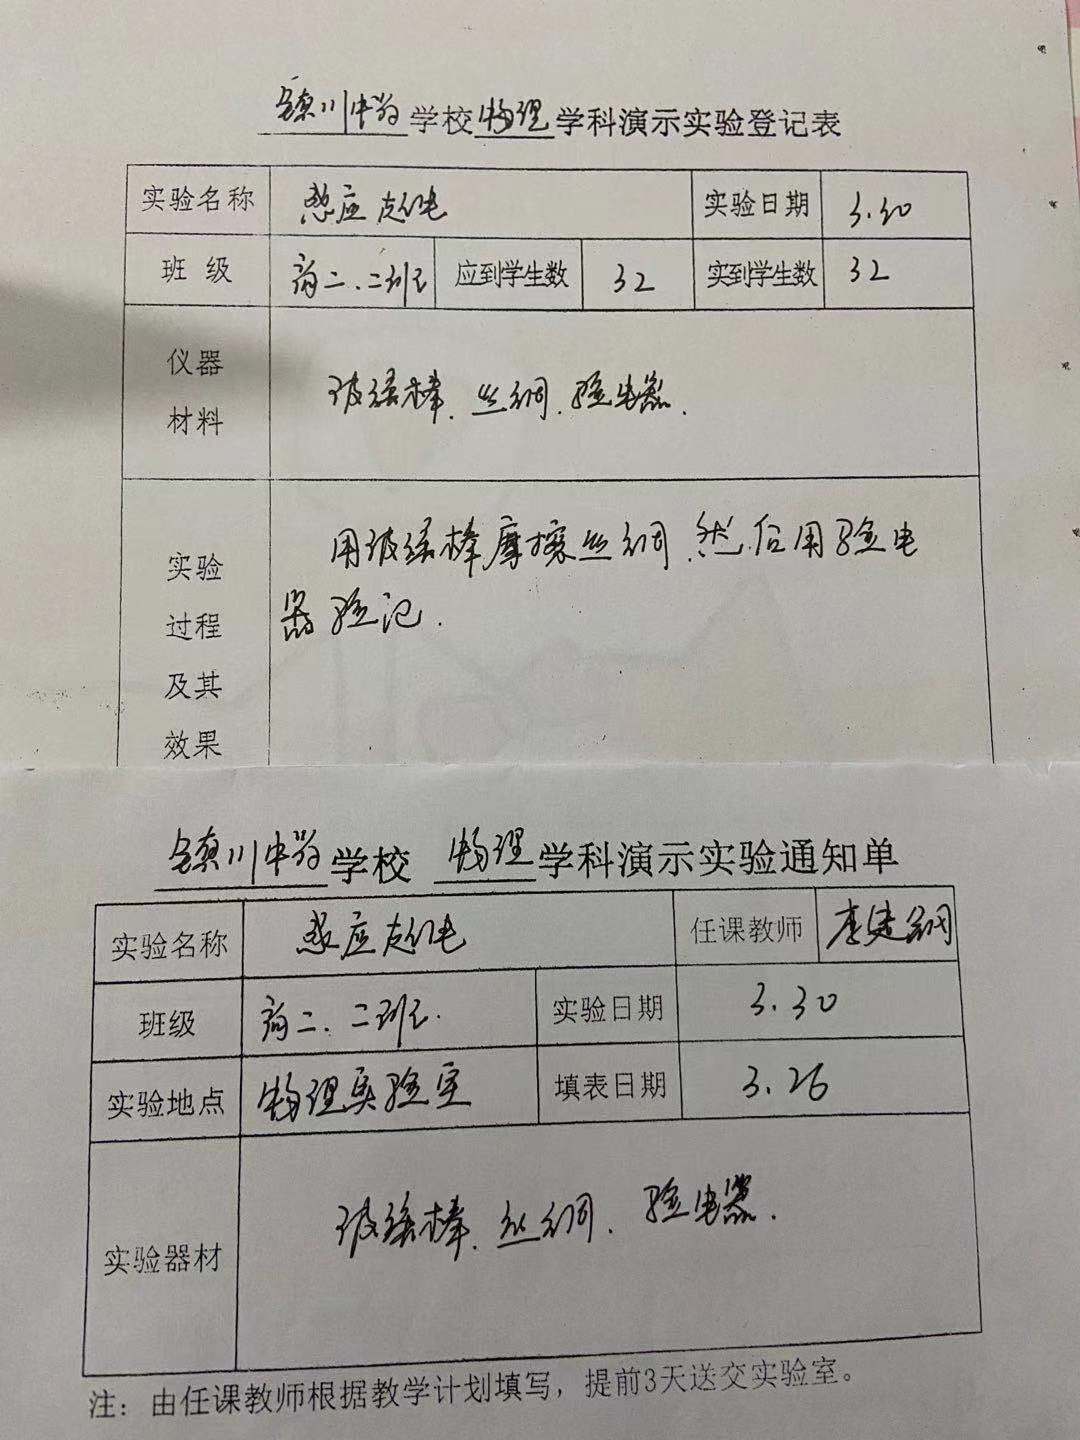 镇川中学学校物理学科演示实验登记表
实验名称 感应起电 实验日期 3.30
班级 高二.二班 应到学生数 32 实到学生数 32
仪器材料 玻璃棒.丝绸.验电器.
实验过程及其效果
用玻璃棒摩擦丝绸.然后用验电
器验记.
镇川中学学校 物理学科演示实验通知单
实验名称 感应起电 任课教师 李建钢
班级 高二.二班. 实验日期 3.30
实验地点 物理实验室 填表日期 3.26
实验器材 玻璃棒.丝绸.验电器.
注：由任课教师根据教学计划填写，提前3天送交实验室。